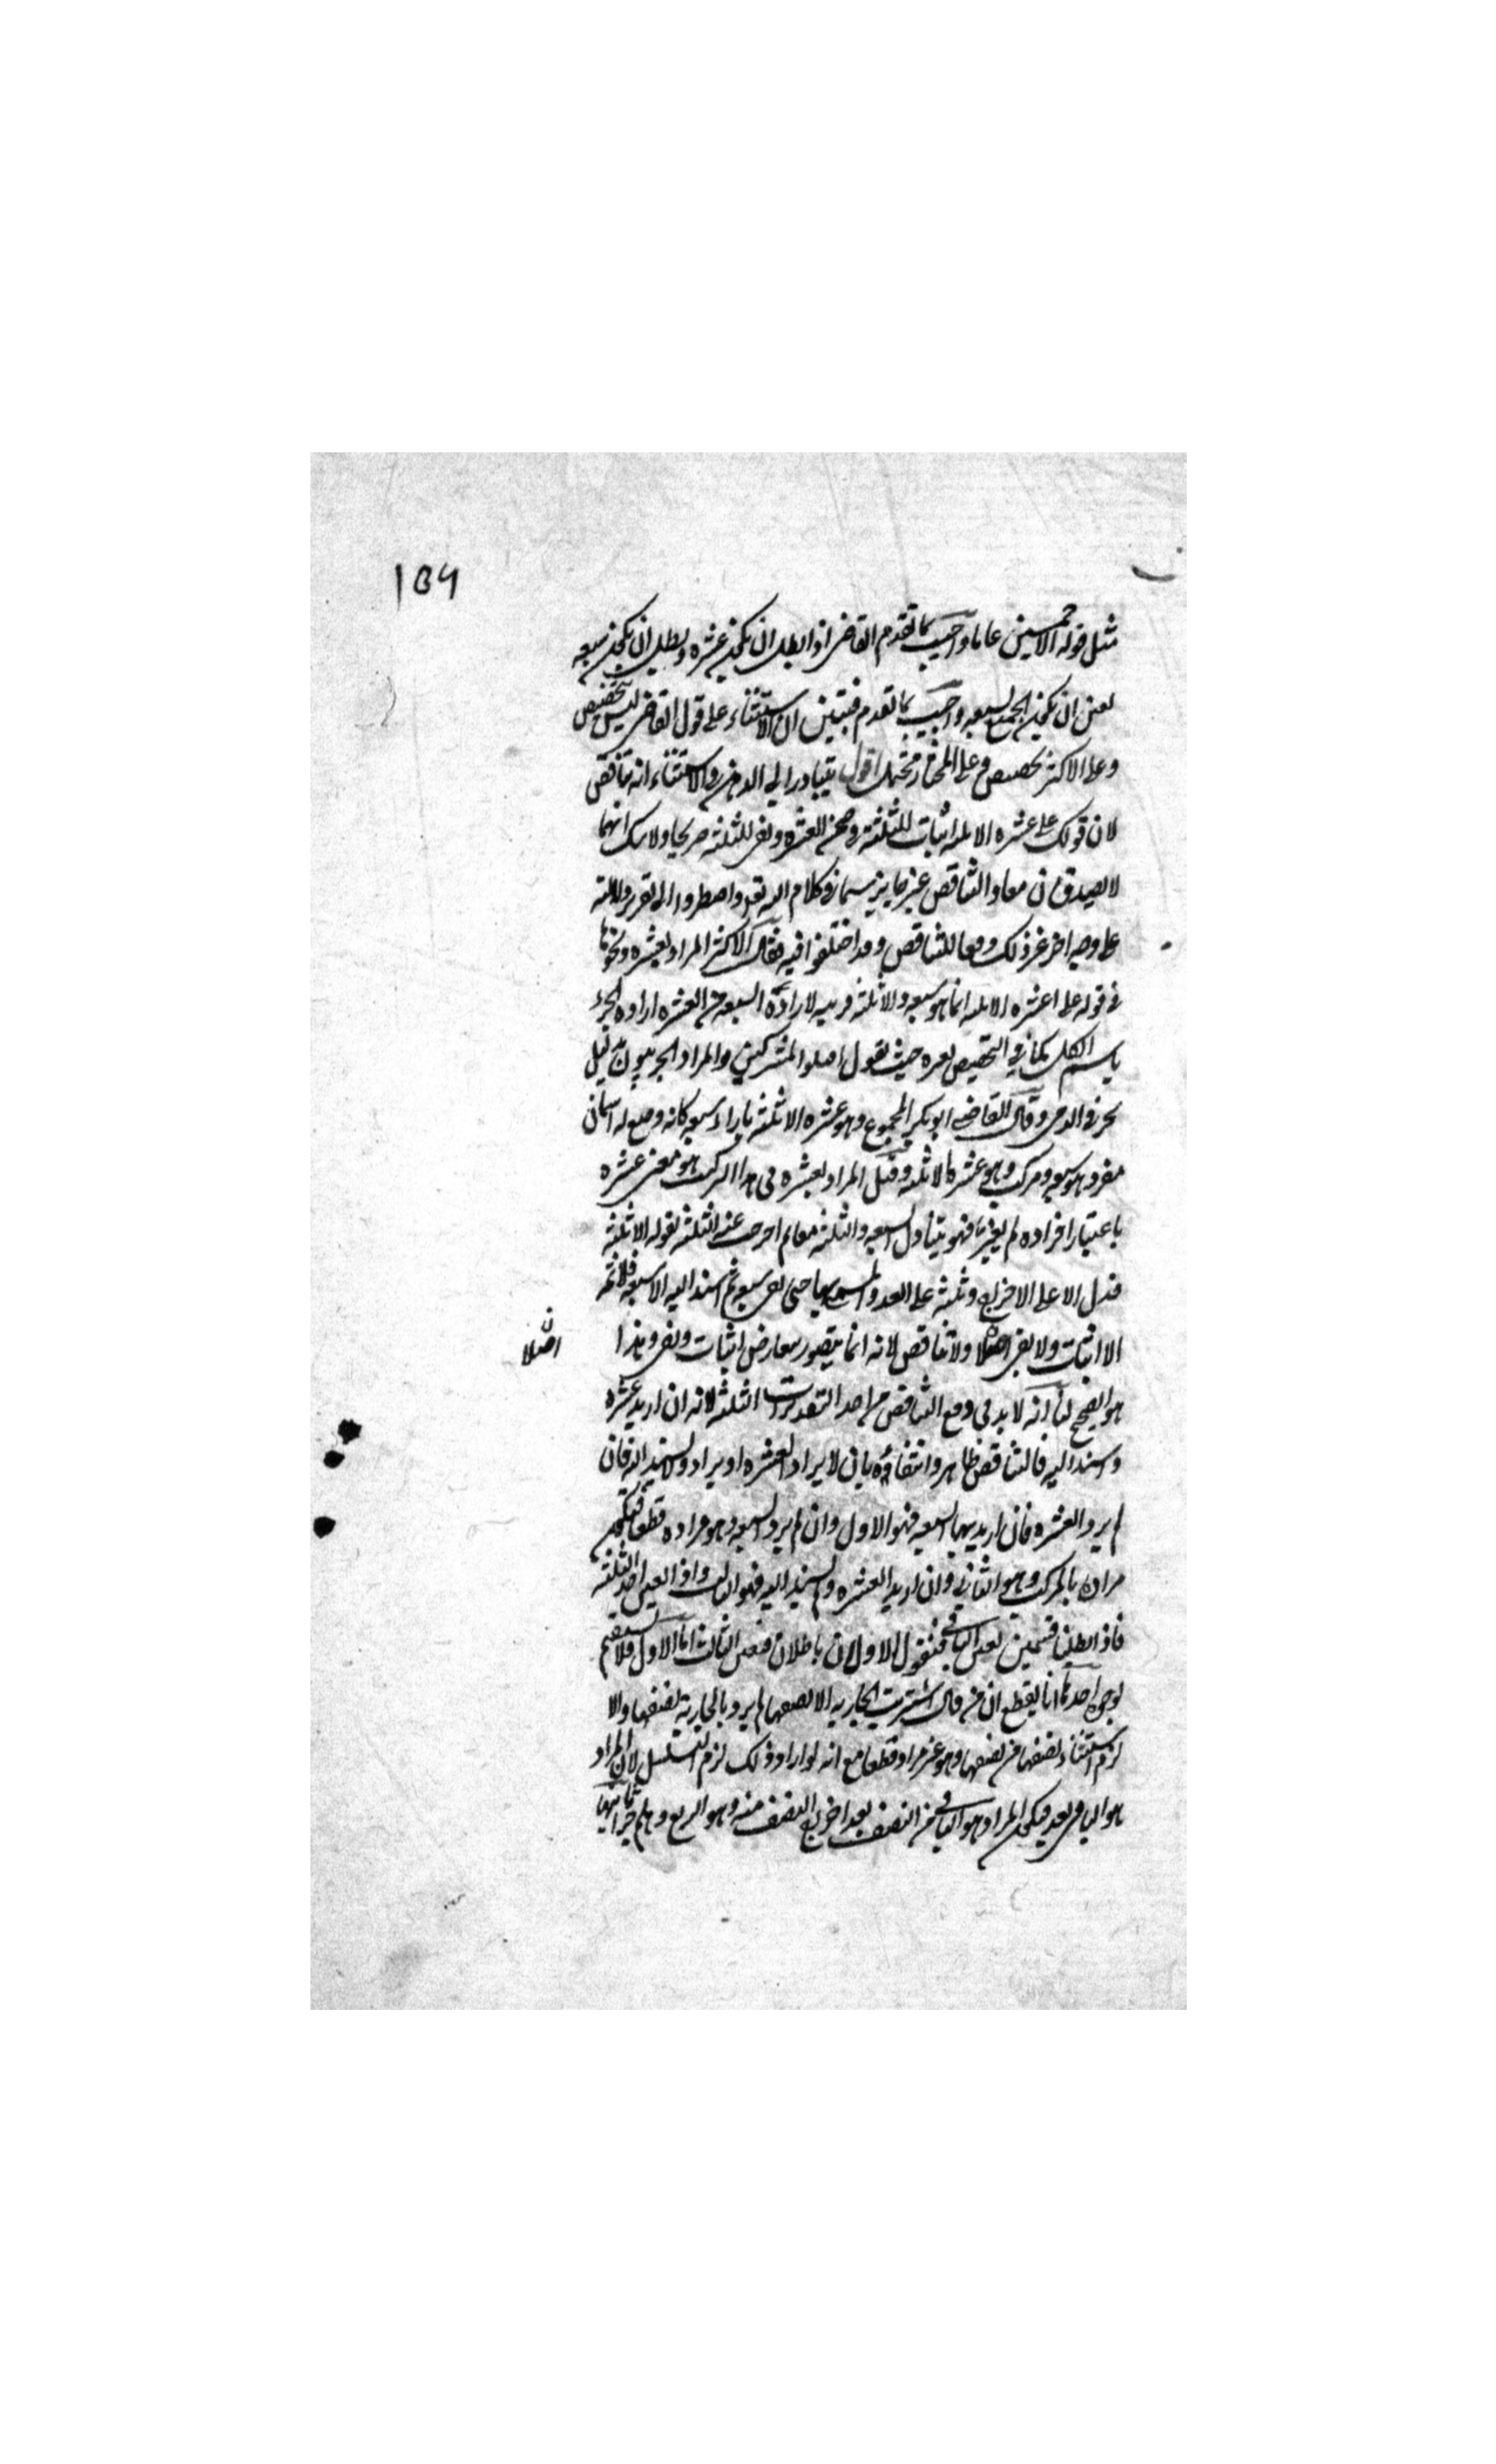 ١٥٩
مثل قوله الا خمسين عاما واجيب بما تقدم القاضي اذا بطل ان يكون عشرة وبطل ان يكون سبعة
تعين ان يكون الجميع لسبعة واجيب بما تقدم فيتبين ان الاستثناء على قول القاضي ليس بتخصيص
وعلى الاكثر تخصيص وعلى المختار محتمل اقول يتبادر الى الذهن في الاستثناء انه تناقض
لان قولك على عشرة الا ثلثة اثبات للثلثة في ضمن العشرة ونفي للثلثة صريحا ولا شك انهما
لا يصدقان معا والتناقض غير جايز سيما في كلام الله تعالى واضطروا الى تقرير دلالته
على وجه اخر غير ذلك دفعا للتناقض وقد اختلفوا فيه فقال الاكثر المراد بعشرة ونحوها
في قوله على عشرة الا ثلثة انما هو سبعة والا ثلثة قرينة لارادة السبعة من العشرة ارادة الجزء
باسم الكل كما في التخصيص بغيره حيث يقول اقتلوا المشركين والمراد الحربيون بدليل
يخرج الذمي وقال القاضي ابو بكر المجموع وهو عشرة الا ثلثة بازاء سبعة كانه وضع له اسمان
مفرد هو سبعة ومركب وهو عشرة الا ثلثة وقيل المراد بعشرة في هذا التركيب هو معنى عشرة
باعتبار افراده لم يتغير فهو يتناول السبعة والثلثة معا ثم اخرجت عنه الثلثة بقوله الا ثلثة
فدل الا على الاخراج وثلثة على العدد المسمى بها حتى بقي سبعة ثم اسند اليه الا سبعة فلا ثمه
الا اثبات ولا نفي اصلا ولا تناقض لانه انما يتصور تعارض اثبات ونفي وهذا
اصلا ن
هو الصحيح لنا انه لا بد في دفع التناقض من احد التقديرات الثلثة لانه ان اريد عشرة
واسند اليه فالتناقض ظاهر وانتفاؤه بان لا يراد العشرة او يراد ولا يسند اليه فان
لم يرد العشرة فان اريد بها السبعة فهو الاول وان لم يرد السبعة وهو مراده قطعا فيكون
مرادا بالمركب وهو الثاني وان اريد العشرة ولم يسند اليه فهو الثالث واذا تعين احد الثلثة
فاذا ابطلنا قسمين تعين الباقي فنقول الاولان باطلان فتعين الثالث اما الاول فلا يستقيم
لوجوه احدها انا نقطع ان من قال اشتريت الجارية الا نصفها لم يرد بالجارية نصفها والا
لزم استثناء نصفها من نصفها وهو غير مراد قطعا مع انه لو اراد ذلك لزم التسلسل لان المراد
هو الباقي بعد فيكون المراد هو الباقي من النصف بعد اخراج النصف منه وهو الربع وهلم جرا ثانيها